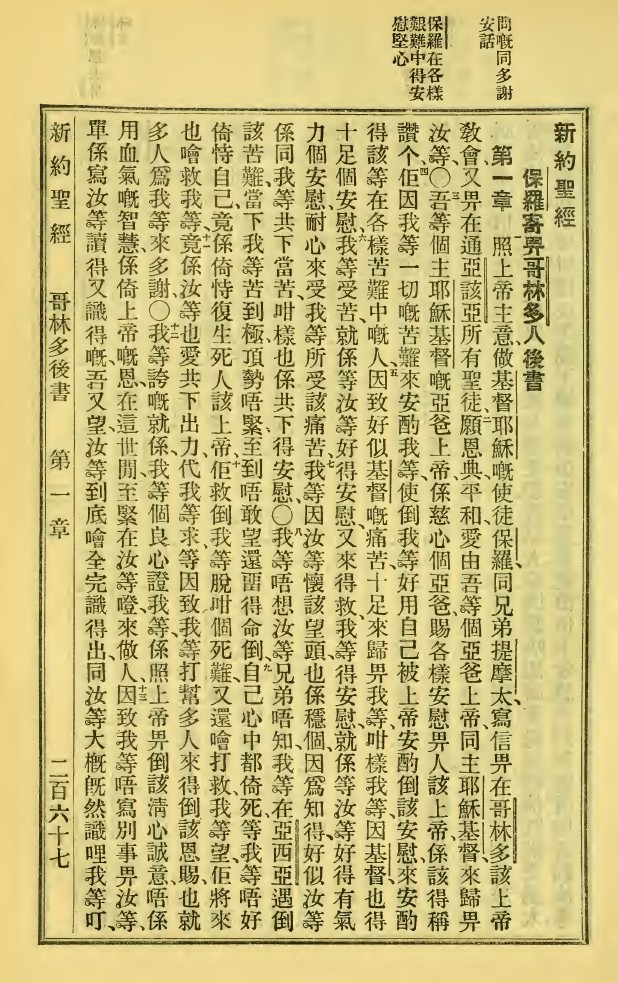 問嘅同多謝
安話
保羅在各樣
艱難中得安
慰堅心
新約聖經
保羅寄畀哥林多人後書
第一章 一照上帝主意、做基督耶穌嘅使徒保羅、同兄弟提摩太、寫信畀在哥林多該上帝
教會、又畀在通亞該亞所有聖徒、二願恩典平和、愛由吾等個亞爸上帝、同主耶穌基督、來歸畀
汝等、〇三吾等個主耶穌基督嘅亞爸上帝、係慈心個亞爸、賜各樣安慰畀人該上帝、係該得稱
讚个、四佢因我等一切嘅苦難來安酌我等、使倒我等好用自己被上帝安酌倒該安慰、來安酌
得該等在各樣苦難中嘅人、五因致好似基督嘅痛苦十足來歸畀我等、咁樣我等因基督也得
十足個安慰、六我等受苦、就係等汝等好得安慰、又來得救、我等得安慰、就係等汝等好得有氣
力個安慰、耐心來受我等所受該痛苦、七我等因汝等懷該望頭也係穩個、因爲知得好似汝等
係同我等共下當苦、咁樣也係共下得安慰、〇八我等唔想汝等兄弟唔知、我等在亞西亞遇倒
該苦難、當下我等苦到極頂、勢唔緊、至到唔敢望還畱得命倒、九自己心中都倚死、等我等唔好
倚恃自己、竟係倚恃復生死人該上帝、十佢救倒我等脫咁個死難、又還噲打救、我等望佢將來
也噲救我等、十一竟係汝等也愛共下出力代我等求、等因致我等打幫多人來得倒該恩賜、也就
多人爲我等來多謝、〇十二我等誇嘅、就係我等個良心證我等、係照上帝畀倒該淸心誠意、唔係
用血氣嘅智慧、係倚上帝嘅恩、在這世間、至緊在汝等嶝來做人、十三因致我等唔寫別事畀汝等、
單係寫汝等讀得又識得嘅、吾又望汝等到底噲全完識得出、同汝等大槪旣然識哩我等、叮、
新約聖經 哥林多後書 第一章 二百六十七